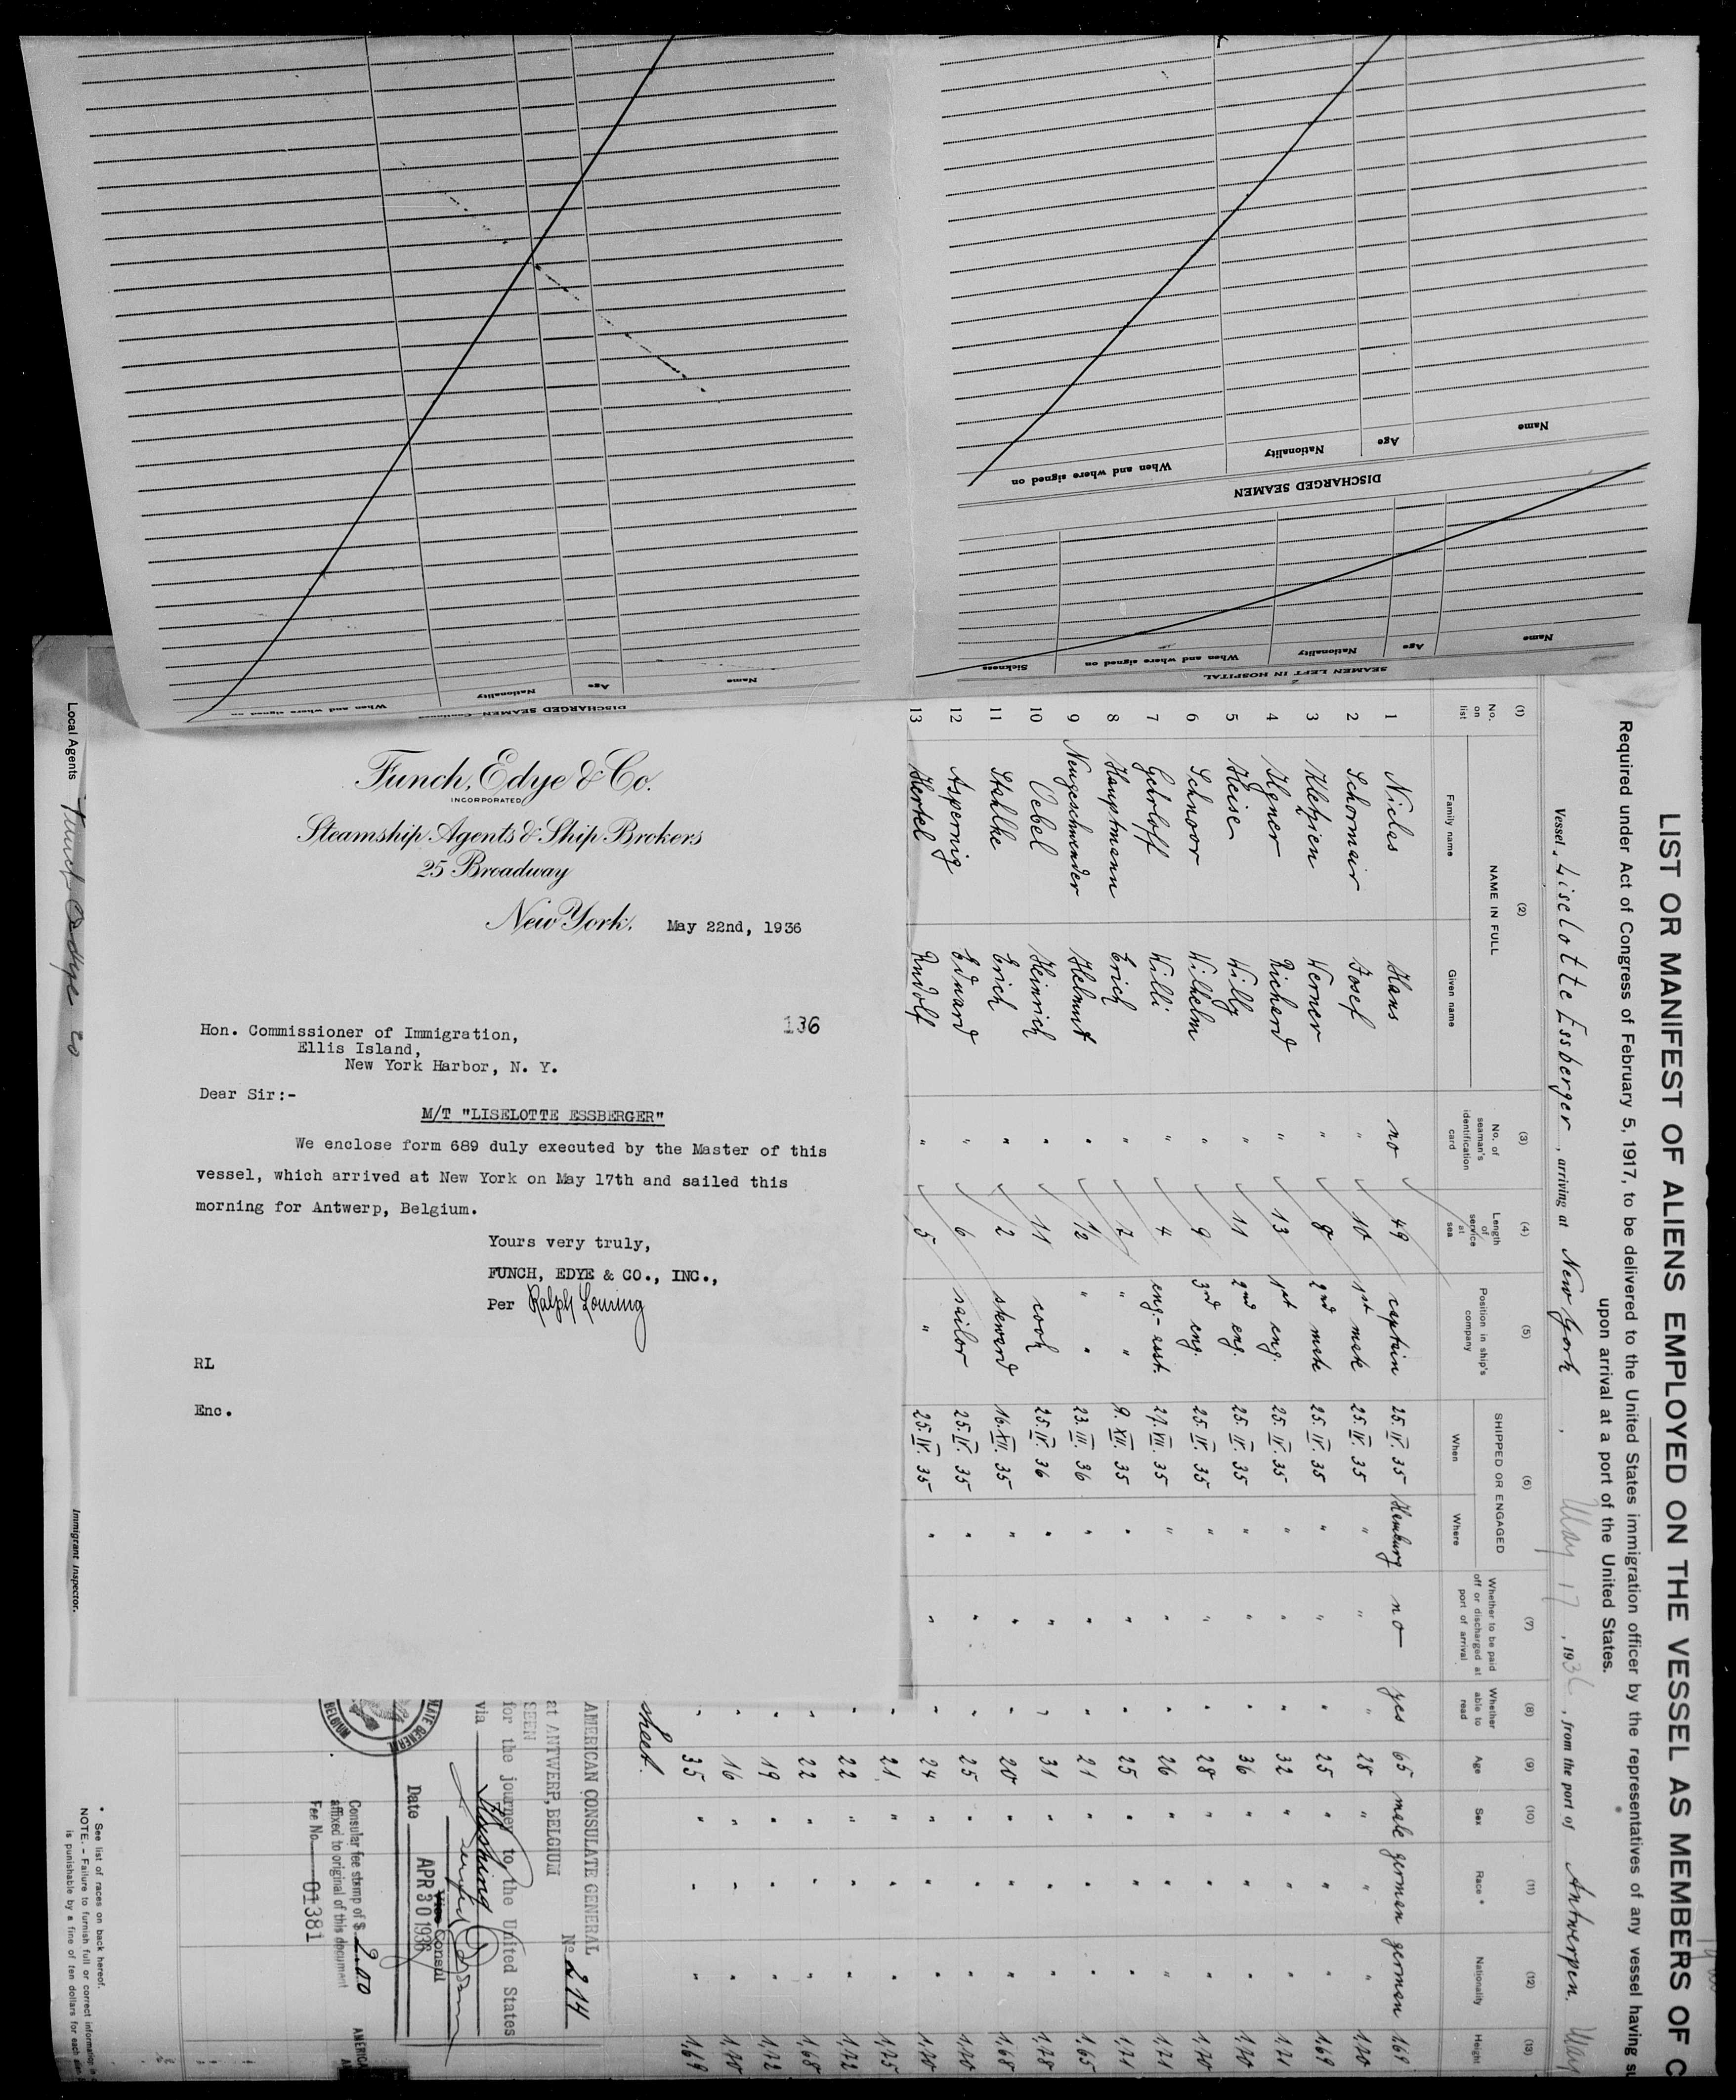 DISCHARGED SEAMEN
Name
Age
Nationality
When and where signed on
SEAMEN LEFT IN HOSPITAL
Name
Age
Nationality
When and where signed on
Sickness
DISCHARGED SEAMEN Continued
Name
Age
Nationality
When and where signed on
Funch, Edye & Co.
INCORPORATED
Steamship Agents & Ship Brokers
25 Broadway
New York. May 22nd, 1936
136
Hon. Commissioner of Immigration,
Ellis Island,
New York Harbor, N. Y.
Dear Sir:-
M/T "LISELOTTE ESSBERGER"
We enclose form 689 duly executed by the Master of this
vessel, which arrived at New York on May 17th and sailed this
morning for Antwerp, Belgium.
Yours very truly,
FUNCH, EDYE & CO., INC.,
Per Ralph Louring
RL
Enc.
LIST OR MANIFEST OF ALIENS EMPLOYED ON THE VESSEL AS MEMBERS OF C
Required under Act of Congress of February 5, 1917, to be delivered to the United States immigration officer by the representatives of any vessel having su
upon arrival at a port of the United States.
Vessel Liselotte Essberger, arriving at New York, May 17, 1936, from the port of Antwerpen. May
(1) (2) (3) (4) (5) (6) (7) (8) (9) (10) (11) (12) (13)
No. on list
NAME IN FULL
Family name
Given name
No. of seaman's identification card
Length of service at sea
Position in ship's company
SHIPPED OR ENGAGED
When
Where
Whether to be paid off or discharged at port of arrival
Whether able to read
Age
Sex
Race *
Nationality
Height
1 Niclas Hans no 49 captain 25.IV.35 Hamburg no yes 65 male german german 169
2 Schormair Josef " 10 1st mate 25.IV.35 " " " 28 " " " 1,70
3 Kletzien Werner " 8 2nd mate 25.IV.35 " " " 25 " " " 1,69
4 Ilgner Richard " 13 1st eng. 25.IV.35 " " " 32 " " " 1,71
5 Heise Willy " 11 2nd eng. 25.IV.35 " " " 36 " " " 1,70
6 Schnoor Wilhelm " 9 3rd eng. 25.IV.35 " " " 28 " " " 1,70
7 Gehrloff Willi " 4 eng.-asst. 27.VII.35 " " " 26 " " " 1,71
8 Hauptmann Erich " 2 " " 9.XII.35 " " " 25 " " " 1,71
9 Neugeschwender Helmut " 1/2 " " 23.III.36 " " " 21 " " " 1,65
10 Oebel Heinrich " 11 cook 25.IV.36 " " " 31 " " " 1,78
11 Stahlke Erich " 2 steward 16.XII.35 " " " 20 " " " 1,68
12 Aspernig Eduard " 6 sailor 25.IV.35 " " " 25 " " " 1,70
13 Hertel Rudolf " 5 " 25.IV.35 " " " 24 " " " 1,70
" 21 " " " 1,75
" 22 " " " 1,72
" 22 " " " 1,68
" 19 " " " 1,72
" 16 " " " 1,70
" 35 " " " 1,69
sheet.
AMERICAN CONSULATE GENERAL
at ANTWERP, BELGIUM No 214
SEEN
for the journey to the United States
via Flushing
Vice Consul
Date APR 30 1936
Consular fee stamp of $ 2.00
affixed to original of this document
Fee No. 01381
BELGIUM
Local Agents Funch Edye Co
Immigrant Inspector.
* See list of races on back hereof.
NOTE. - Failure to furnish full or correct information
is punishable by a fine of ten dollars for each